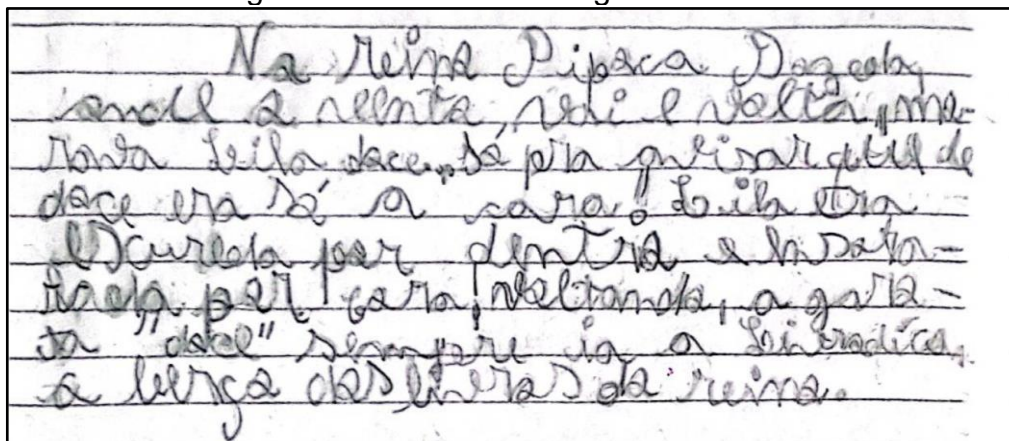 Na reino Pipoca Dozedo,
onde o vento, vai e volta, mo-
rava Leila doce, só pra avisar que de
doce era só a cara! Leila era
escureda por dentro e ensola-
rada por fora, voltando, a garo-
ta "doce" sempre ia a
a berço dos livros do reino.